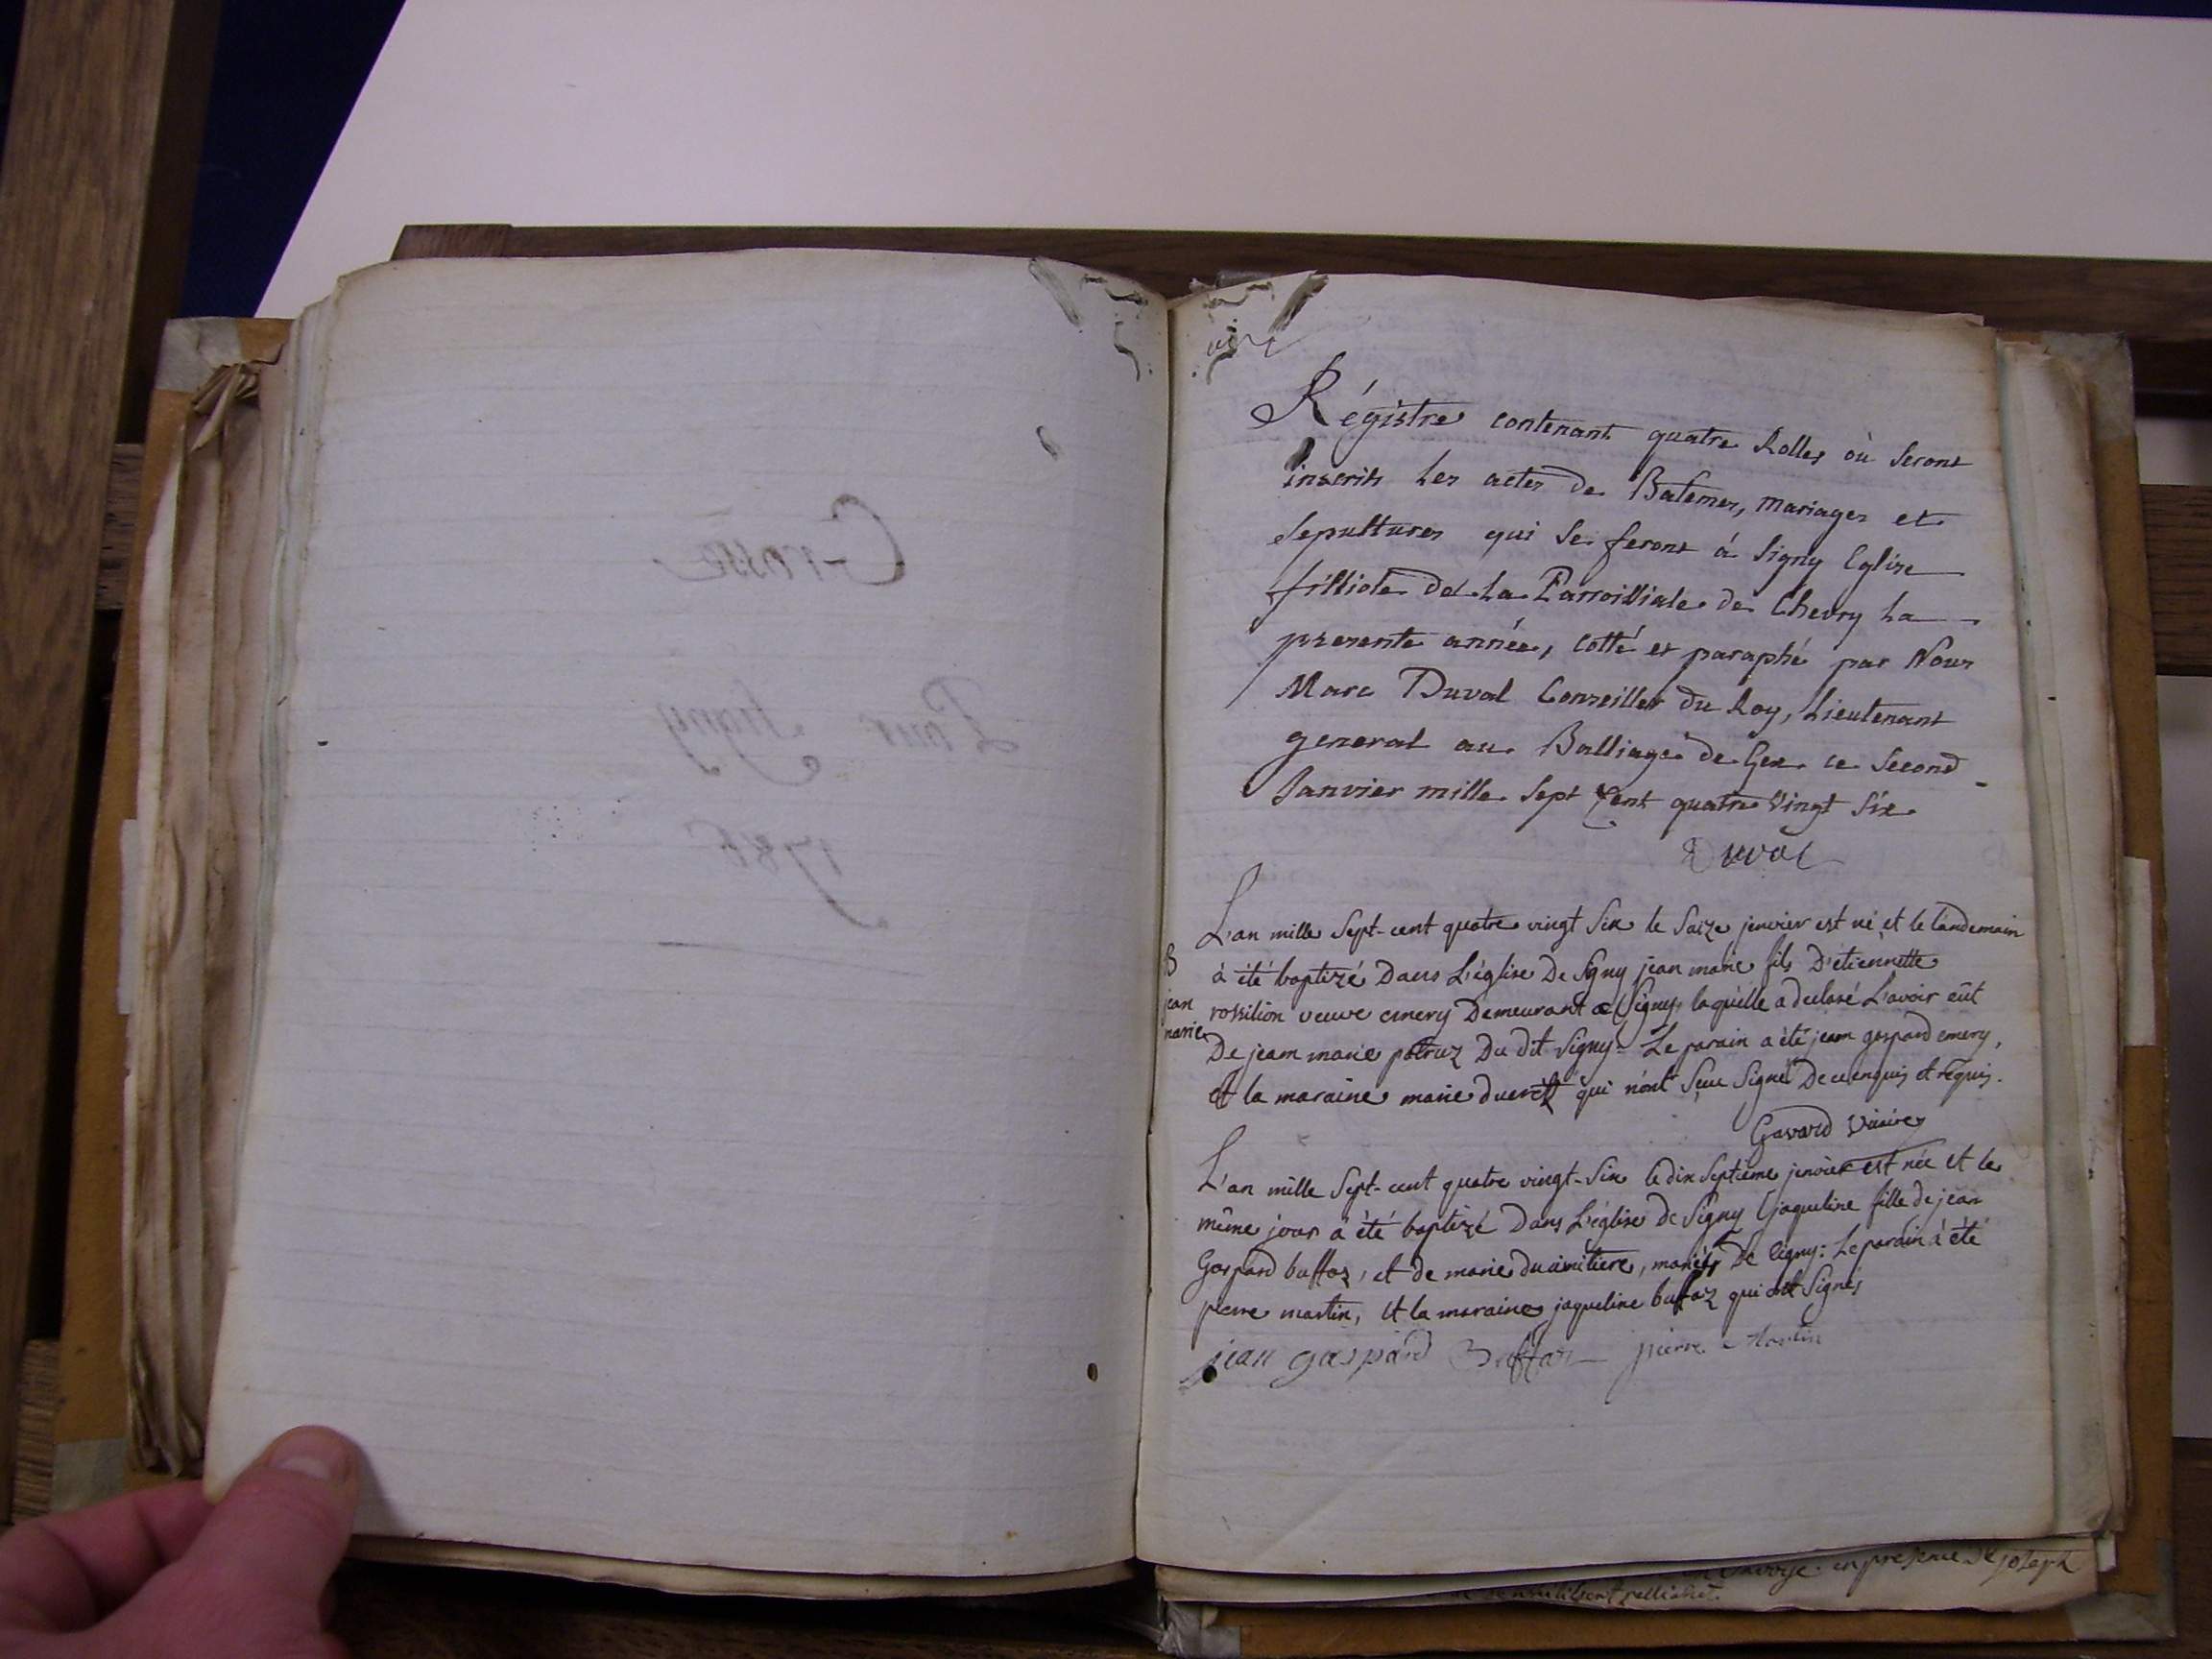 Grosse
Pour Signy
1786
Régistre contenant quatre Rolles où seront
inscrits les actes de Batemes, mariages et
sepultures qui se feront á Signy Eglise
filliole de la Parroissiale de Chevry la
presente année, cotté et paraphé par Nous
Marc Duval Conseiller du Roy, Lieutenant
general au Balliage de Gex ce second
Janvier mille sept cent quatre vingt six
Duval
L'an mille sept-cent quatre vingt six le saize jenvier est né et le landemain
à été baptizé dans L'église de Signy jean marie fils d'étiennette
B
jean
marie
rossilion veuve emery demeurant a Signy, laquelle a declaré L'avoir eût
De jean marie Du dit Signy: Le parain a été jean gaspard emery,
et la maraine marie qui n'ont seue signé De ce enquis et requis.
Gavard Vicaire
L'an mille sept-cent quatre vingt-six le dix septieme jenvier est née et le
même jour a été baptizé dans L'église de Signy jaqueline fille de jean
Gaspard buffaz, et de marie ducimitiere, mariés de Signy: Le parain à été
pierre martin, et la maraine jaqueline buffaz qui ont signés
jean gaspard Buffaz pierre Martin
en presence de joseph